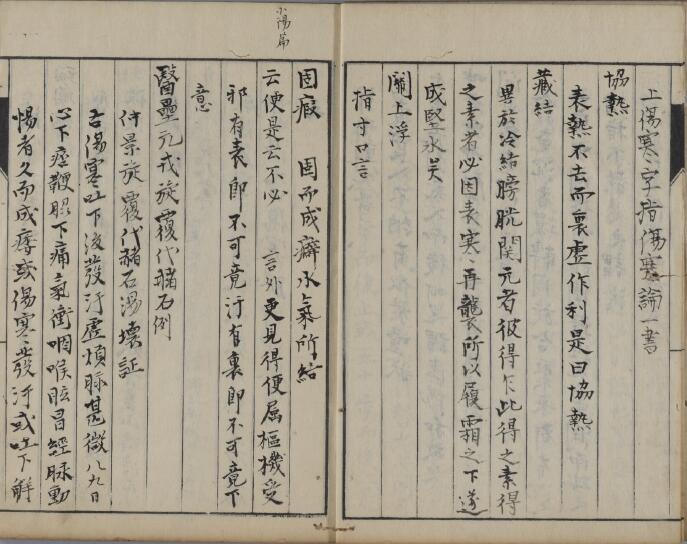 上傷寒字指傷寒論一書
協熱
表熱不去而裏虛作利是曰協熱
藏結
異於冷結膀胱関元者彼得乍此得之素得
之素者必因表寒〻再襲所以履霜之下遂
成堅氷矣
關上浮
指寸口言
少陽篇
固瘕　固而成癖水氣所結
云便是云不必　言外更見得便属樞機受
邪有表即不可竟汗有裏即不可竟下
意
醫壘元戎旋覆代赭石例
仲景旋覆代赭石湯壊証
吉傷寒吐下後發汗虛煩脉甚微八九日
心下痞鞕脇下痛氣衝咽喉眩冒經脉動
惕者久而成痿或傷寒發汗或吐下解